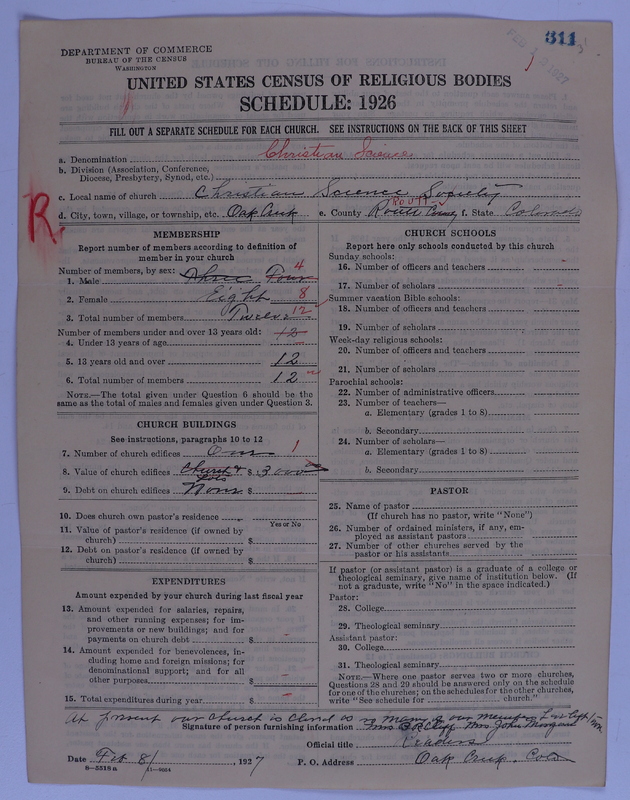 DEPARTMENT OF COMMERCE
BUREAU OF THE CENSUS
WASHINGTON
311
UNITED STATES CENSUS OF RELIGIOUS BODIES
SCHEDULE: 1926
FILL OUT A SEPARATE SCHEDULE FOR EACH CHURCH. SEE INSTRUCTIONS ON THE BACK OF THIS SHEET
a. Denomination Christian Science
b. Division (Association, Conference,
Diocese, Presbytery, Synod, etc.)
c. Local name of church Christian Science Society
R. d. City, town, village, or township, etc. Oak Creek e. County Routt County f. State Colorado
ROUTT
MEMBERSHIP
Report number of members according to definition of
member in your church
Number of members, by sex:
1. Male Three Four 4
2. Female Eight 8
3. Total number of members Twelve 12
Number of members under and over 13 years old: 12
4. Under 13 years of age
5. 13 years old and over 12
6. Total number of members 12
NOTE.—The total given under Question 6 should be the
same as the total of males and females given under Question 3.
CHURCH BUILDINGS
See instructions, paragraphs 10 to 12
7. Number of church edifices One 1
8. Value of church edifices Church & Lots $ 3000
9. Debt on church edifices None $
10. Does church own pastor's residence
Yes or No
11. Value of pastor's residence (if owned by
church) $
12. Debt on pastor's residence (if owned by
church) $
EXPENDITURES
Amount expended by your church during last fiscal year
13. Amount expended for salaries, repairs,
and other running expenses; for im-
provements or new buildings; and for
payments on church debt $
14. Amount expended for benevolences, in-
cluding home and foreign missions; for
denominational support; and for all
other purposes $
15. Total expenditures during year $
CHURCH SCHOOLS
Report here only schools conducted by this church
Sunday schools:
16. Number of officers and teachers
17. Number of scholars
Summer vacation Bible schools:
18. Number of officers and teachers
19. Number of scholars
Week-day religious schools:
20. Number of officers and teachers
21. Number of scholars
Parochial schools:
22. Number of administrative officers
23. Number of teachers—
a. Elementary (grades 1 to 8)
b. Secondary
24. Number of scholars—
a. Elementary (grades 1 to 8)
b. Secondary
PASTOR
25. Name of pastor
(If church has no pastor, write "None")
26. Number of ordained ministers, if any, em-
ployed as assistant pastors
27. Number of other churches served by the
pastor or his assistants
If pastor (or assistant pastor) is a graduate of a college or
theological seminary, give name of institution below. (If
not a graduate, write "No" in the space indicated.)
Pastor:
28. College
29. Theological seminary
Assistant pastor:
30. College
31. Theological seminary
NOTE.—Where one pastor serves two or more churches,
Questions 28 and 29 should be answered only on the schedule
for one of the churches; on the schedules for the other churches,
write "See schedule for church."
At present our church is closed as many of our members has left town
Signature of person furnishing information Mrs Mrs John Morgan
Official title Readers
Date Feb 8/, 1927 P. O. Address Oak Creek, Colo
8-5518a 11-9064